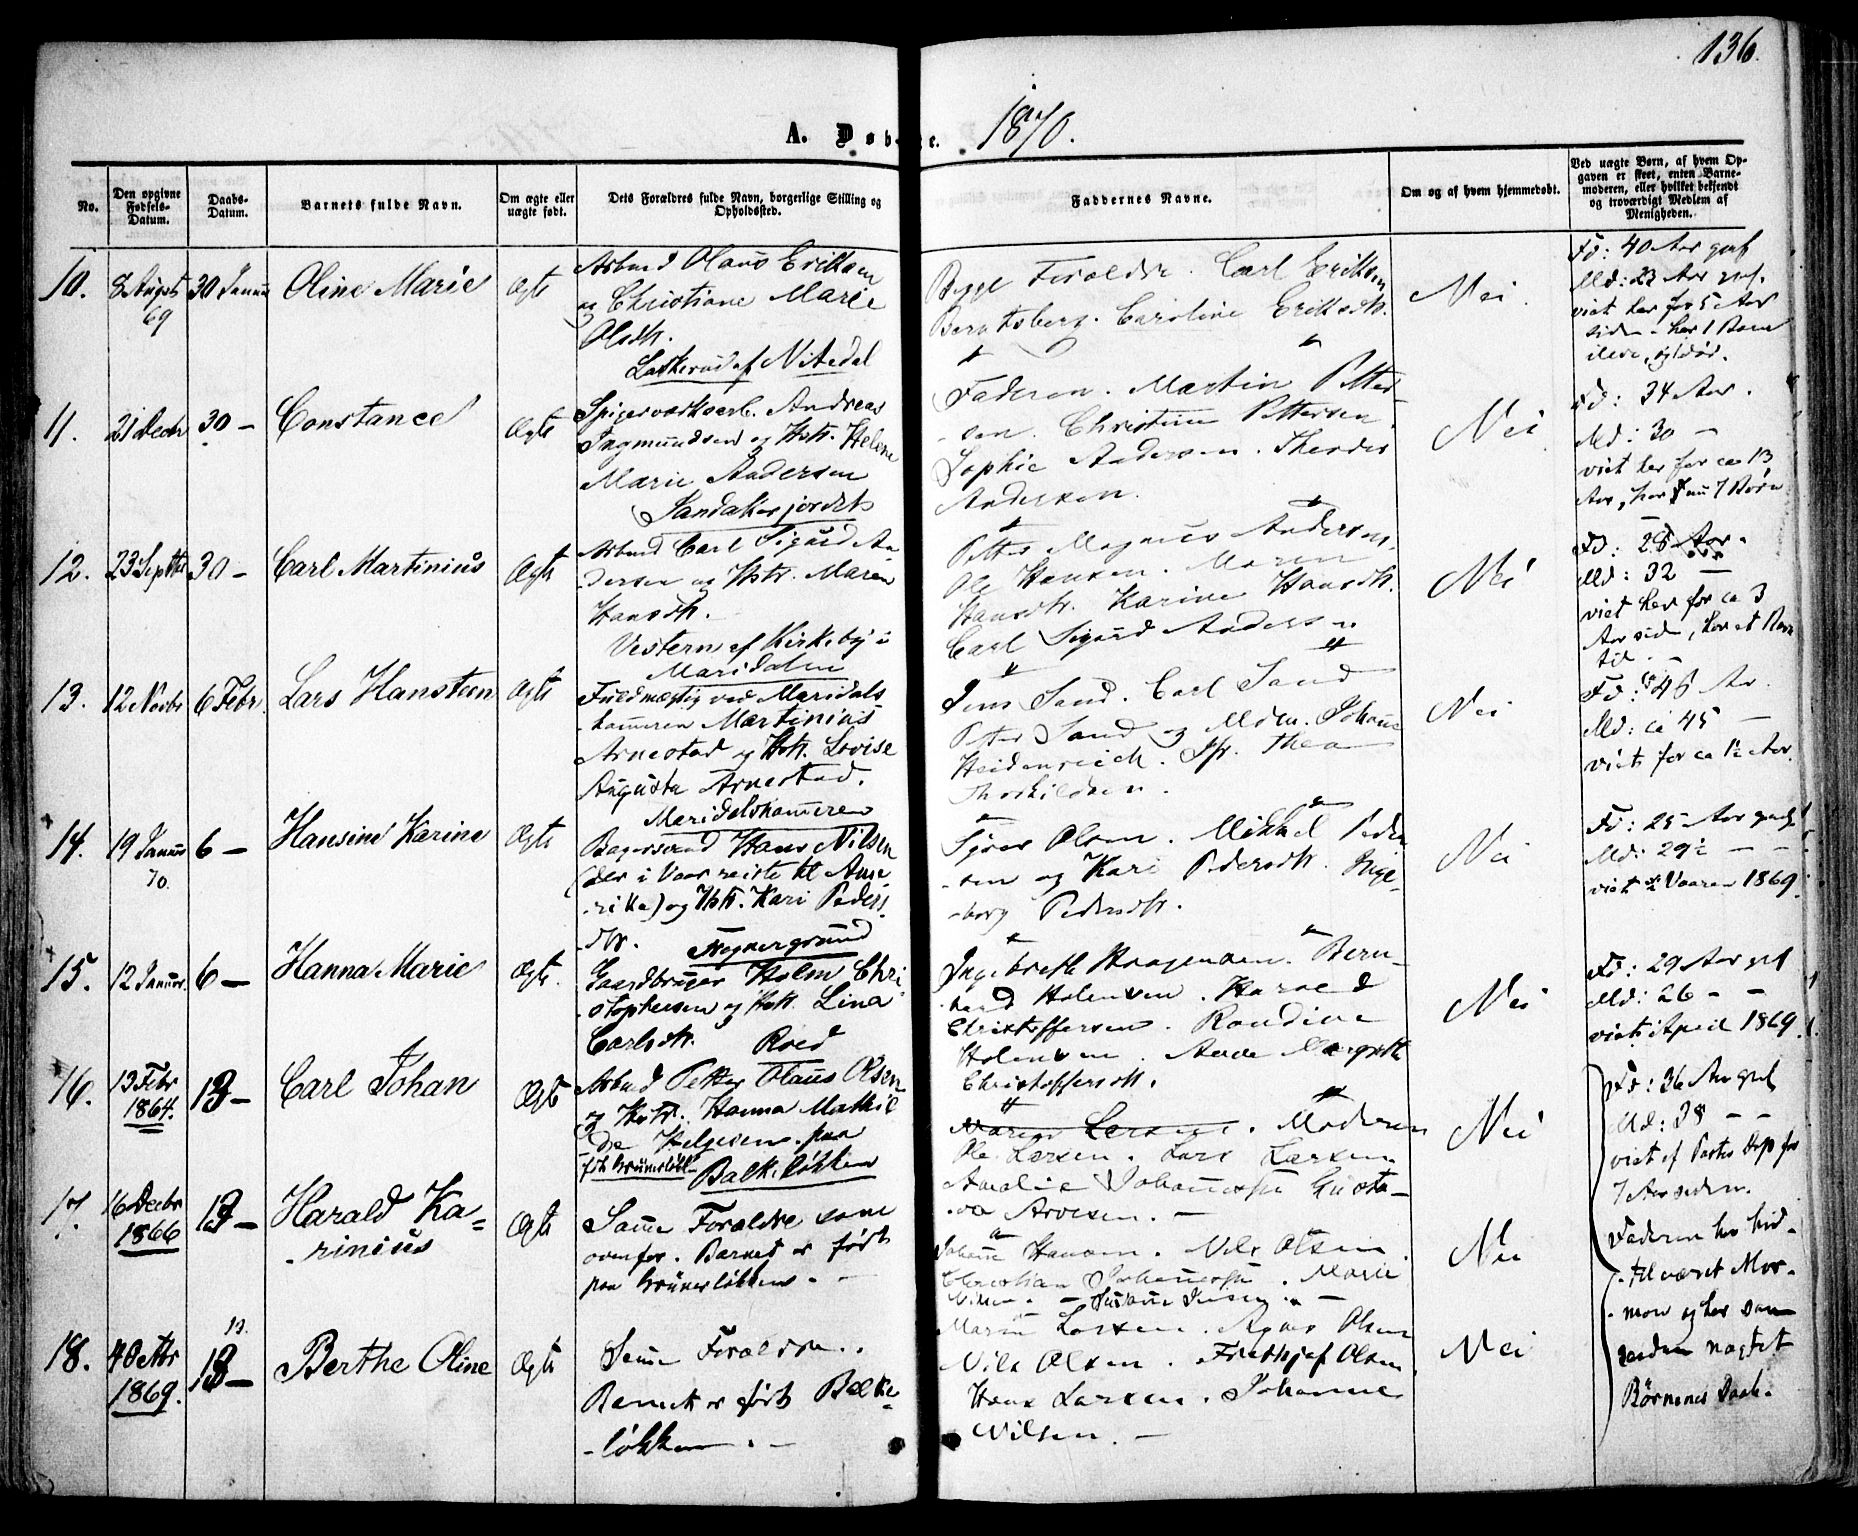 136.
A. Døb e. 1870.
No.
Den opgivne Fødsels-Datum.
Daabs-Datum.
Barnets fulde Navn.
Om ægte eller uægte født.
Dets Forældres fulde Navn, borgerlige Stilling og Opholdssted.
Faddernes Navne.
Om og af hvem hjemmedøbt.
Ved uægte Børn, af hvem Opgaven er skeet, enten Barnemoderen, eller hvilket bekjendt og troværdigt Medlem af Menigheden.
10.
8 August
69
30 Januar
Oline Marie
Ægte
Arbmd Olaus Eriksen
og Christiane Marie
Olsdtr.
Laskerud af Nitedal
Begge Forældre. Carl Eriksen
Caroline Eriksdtr.
Nei
Fd: 40 Aar
Md: 23 Aar
viet her for 5 Aar
siden - har 1 Barn
ilive, og 1 død.
11.
21 Decbr
30 -
Constance
Ægte
Spigerværksarb. Andreas
Ingmundsen og Hstr. Helene
Marie Andersen
Sandakerjordet
Faderen. Martin Petter-
sen. Christine Pettersen
Sophie Andersen.
Andersen.
Nei
Fd: 34 Aar.
Md: 30 -
viet her for ca 13
Aar, har 7 Børn
12.
23 Septbr
30 -
Carl Martinius
Ægte
Arbmd Carl Sigurd An-
dersen og Hstr. Maren
Hansdtr.
Vestern af Kirkeby i
Maridalen
Petter Magnus Andersen.
Ole Hansen. Maren
Hansdtr. Karine Hansdtr.
Carl Sigurd Andersen
Nei
Fd: 28 Aar.
Md: 32 -
viet her for ca 3
Aar sid, har et Barn
til.
13.
12 Novbr
6 Febr.
Lars Hansteen
Ægte
Fuldmægtig ved Maridals-
hammeren Martinius
Arnestad og Hstr. Lovise
Augusta Arnestad.
Maridalshammeren
Jens Sand. Carl Sand
Petter Sand og Mdm. Johanne
Heidenreich. Jfr. Thea
Thorkildsen.
Nei
Fd: 48 Aar.
Md: ca 45 -
viet for ca 12 Aar.
14.
19 Januar
70.
6 -
Hansine Karine
Ægte
Bagersvend Hans Nilsen
(der i Vaar reiste til Ame-
rika) og Hstr. Kari Peders-
dtr.
Wegnergrund
Olsen. Mikkel Peder-
sen og Kari Pedersdtr. Inge-
borg Pedersdtr.
Nei
Fd: 25 Aar
Md: 29½ - -
viet Vaaren 1869
15.
12 Januar.
6 -
Hanna Marie
Ægte
Gaardbruger Holm Chri-
stophersen og Hstr. Lina
Carlsdtr.
Roed
Ingebreth Haagensen. Bern-
hard Holmsen.
Christoffersen. Randine
Holmsen. Margrethe
Christoffersdtr.
Nei
Fd: 29 Aar
Md: 26 - -
viet i April 1869.
16.
13 Febr
1864.
13 -
Carl Johan
Ægte
Arbmd Petter Olaus Olsen
og Hstr. Hanna Mathil-
de Helgesen. paa
født Grünerløkk-
Balkeløkken
Maren Larsen. Moderen
Ole Larsen. Lars Larsen.
Amalie Johannesen Gusta-
va Arvesen. -
Nei
Fd: 36 Aar
Md: 38 - -
viet af Pastor Hop for
7 Aar siden.
17.
16 Decbr
1866
13 -
Harald Ka-
rinius
Ægte
Samme Forældre som
ovenfor. Barnet er født
paa Grünerløkken. -
Johanne Hansen. Nils Olsen.
Christian Johannesen. Marie
Nilsen. -
Nei
Faderen har hid-
til været Mor-
mon og har som
saadan nægtet
Børnenes Daab.
18.
4 Octbr
1869.
13.
13 -
Berthe Oline
Ægte
Samme Forældre.
Barnet er født Balke-
løkken. -
Maren Larsen. Agnes Olsen
Nils Olsen. Frithjof Olsen
Hans Larsen. Johanne
Nilsen. -
Nei